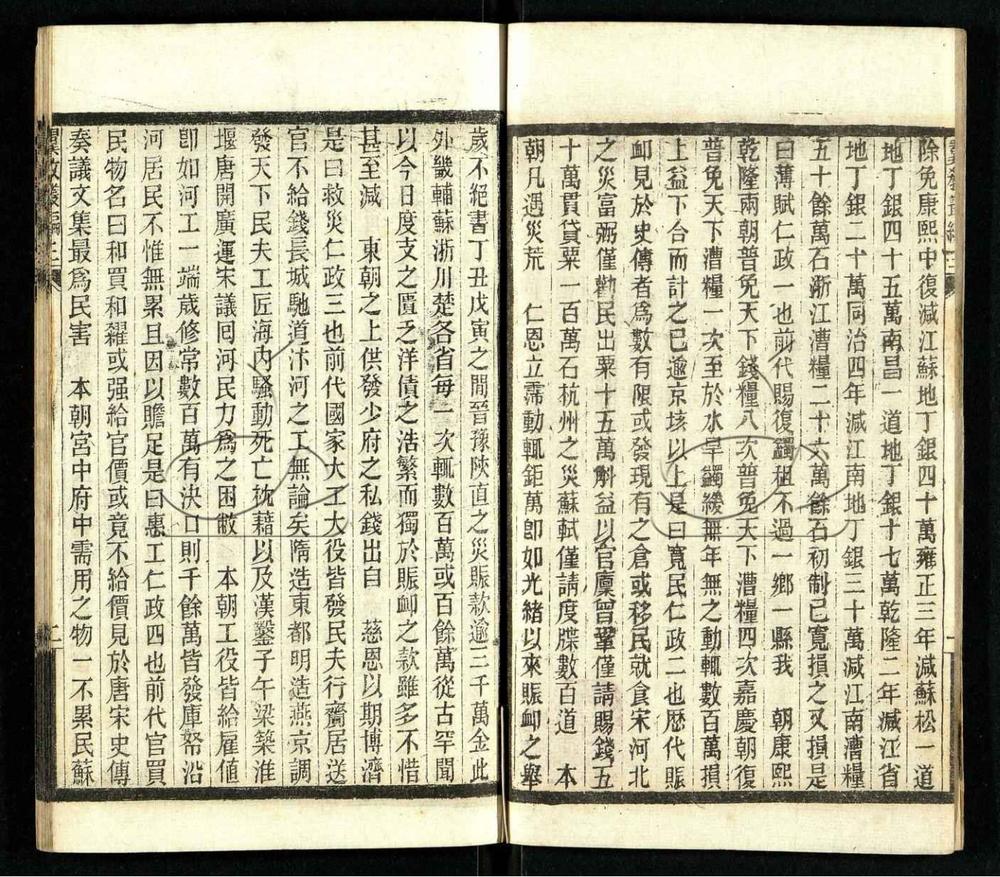 除免康熙中復減江蘇地丁銀四十萬雍正三年減蘇松一道
地丁銀四十五萬南昌一道地丁銀十七萬乾隆二年減江省
地丁銀二十萬同治四年減江南地丁銀三十萬減江南漕糧
五十餘萬石浙江漕糧二十六萬餘石初制已寬損之又損是
曰薄賦仁政一也前代賜復蠲租不過一鄉一縣我　朝康熙
乾隆兩朝普免天下錢糧八次普免天下漕糧四次嘉慶朝復
普免天下漕糧一次至於水旱蠲緩無年無之動輒數百萬損
上益下合而計之已逾京垓以上是曰寬民仁政二也歴代賑
卹見於史傳者爲數有限或發現有之倉或移民就食宋河北
之災富弼僅勸民出粟十五萬斛益以官廩曾鞏僅請賜錢五
十萬貫貸粟一百萬石杭州之災蘇軾僅請度牒數百道　本
朝凡遇災荒　仁恩立霈動輒鉅萬卽如光緒以來賑卹之舉
歲不絕書丁丑戊寅之間晉豫陝直之災賑款逾三千萬金此
外畿輔蘇浙川楚各省每一次輒數百萬或百餘萬從古罕聞
以今日度支之匱乏洋債之浩繁而獨於賑卹之款雖多不惜
甚至減　東朝之上供發少府之私錢出自　慈恩以期博濟
是曰救災仁政三也前代國家大工大役皆發民夫行齎居送
官不給錢長城馳道汴河之工無論矣隋造東都明造燕京調
發天下民夫工匠海內騷動死亡枕藉以及漢鑿子午梁築淮
堰唐開廣運宋議囘河民力爲之困敝　本朝工役皆給雇値
卽如河工一端歲修常數百萬有決口則千餘萬皆發庫帑沿
河居民不惟無累且因以贍足是曰惠工仁政四也前代官買
民物名曰和買和糴或强給官價或竟不給價見於唐宋史傳
奏議文集最爲民害　本朝宮中府中需用之物一不累民蘇
翼教叢編三
二